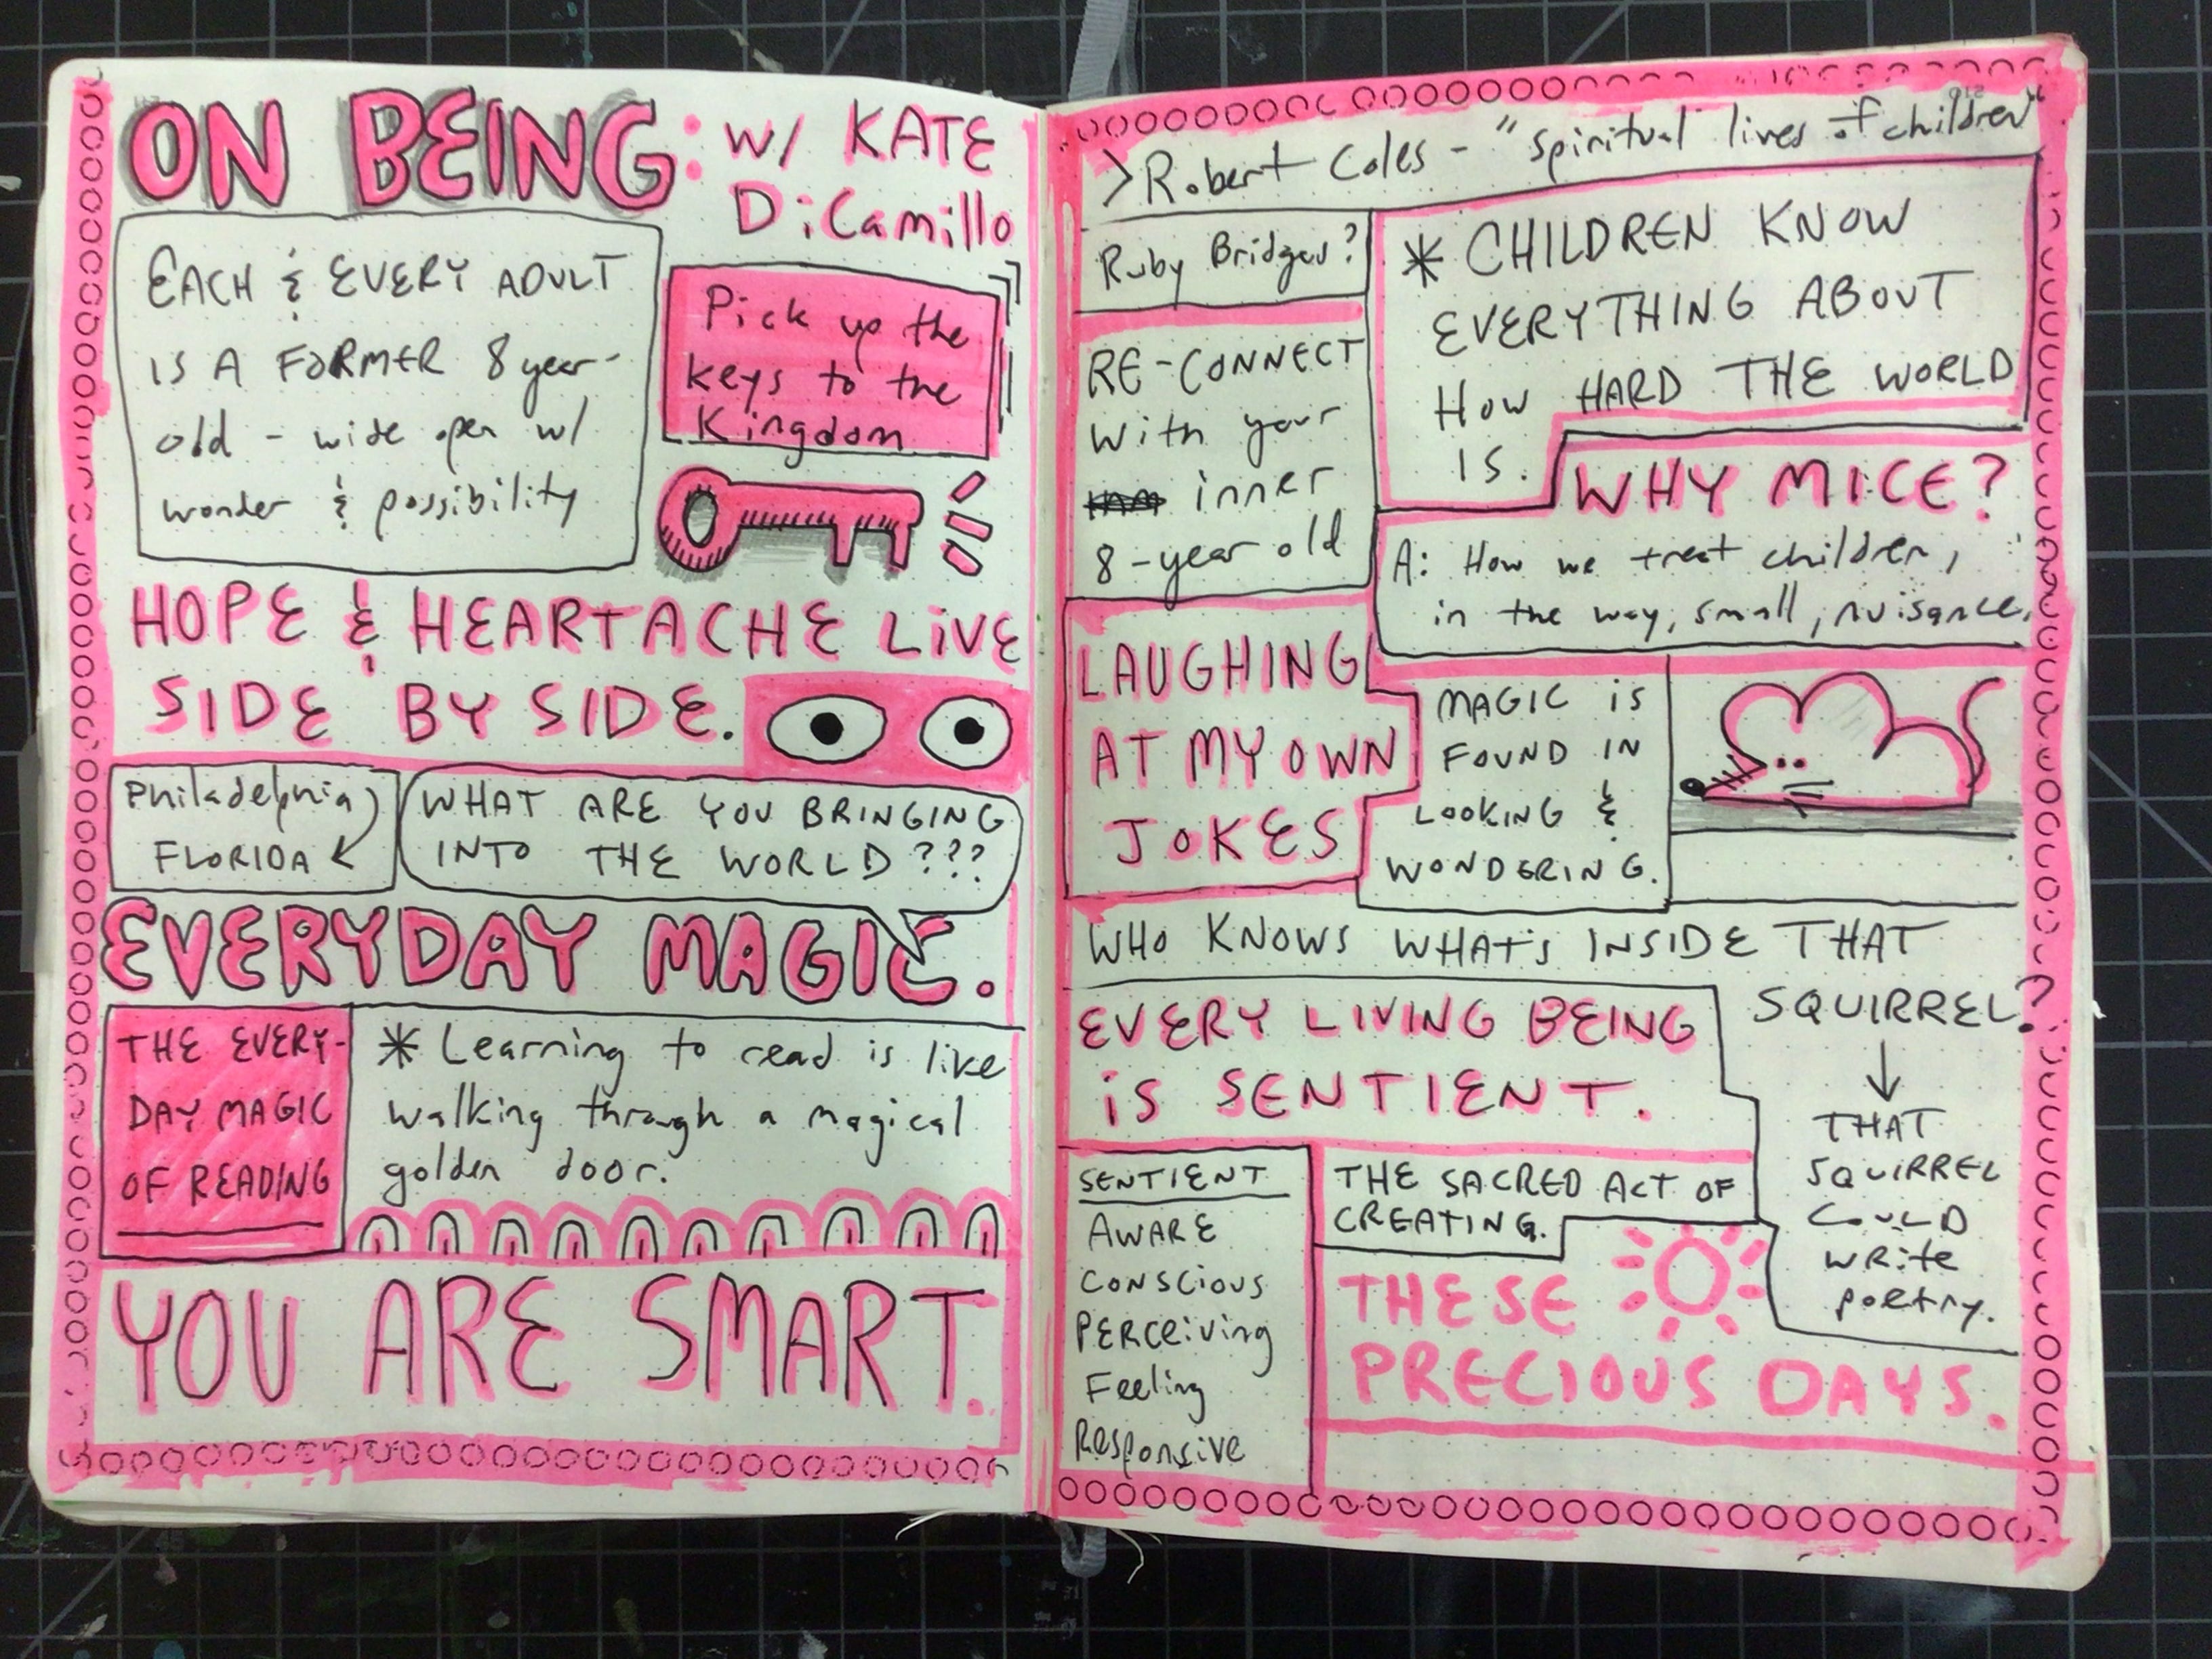 ON BEING: W/ KATE
DiCamillo
EACH & EVERY ADULT
IS A FORMER 8 year-
old - wide open w/
wonder & possibility
Pick up the
keys to the
Kingdom
HOPE & HEARTACHE LiVE
SIDE BY SIDE.
Philadelphia
FLORIDA
WHAT ARE YOU BRINGING
INTO THE WORLD???
EVERYDAY MAGIC.
THE EVERY-
DAY MAGIC
OF READING
* Learning to read is like
walking through a magical
golden door.
YOU ARE SMART.
>Robert Coles - "spiritual lives of children"
Ruby Bridges?
* CHILDREN KNOW
EVERYTHING ABOUT
HOW HARD THE WORLD
IS.
RE-CONNECT
With your
inner
8-year old
WHY MICE?
A: How we treat children,
in the way, small, nuisance.
LAUGHING
AT MY OWN
JOKES
MAGIC iS
FOUND IN
LOOKING &
WONDERING.
WHO KNOWS WHAT'S INSIDE THAT
SQUIRREL?
EVERY LIVING BEING
iS SENTIENT.
THAT
SQUIRREL
COULD
WRite
poetry.
SENTIENT
AWARE
CONSCIOUS
PERCEiving
Feeling
Responsive
THE SACRED ACT OF
CREATING.
THESE
PRECIOUS DAYS.